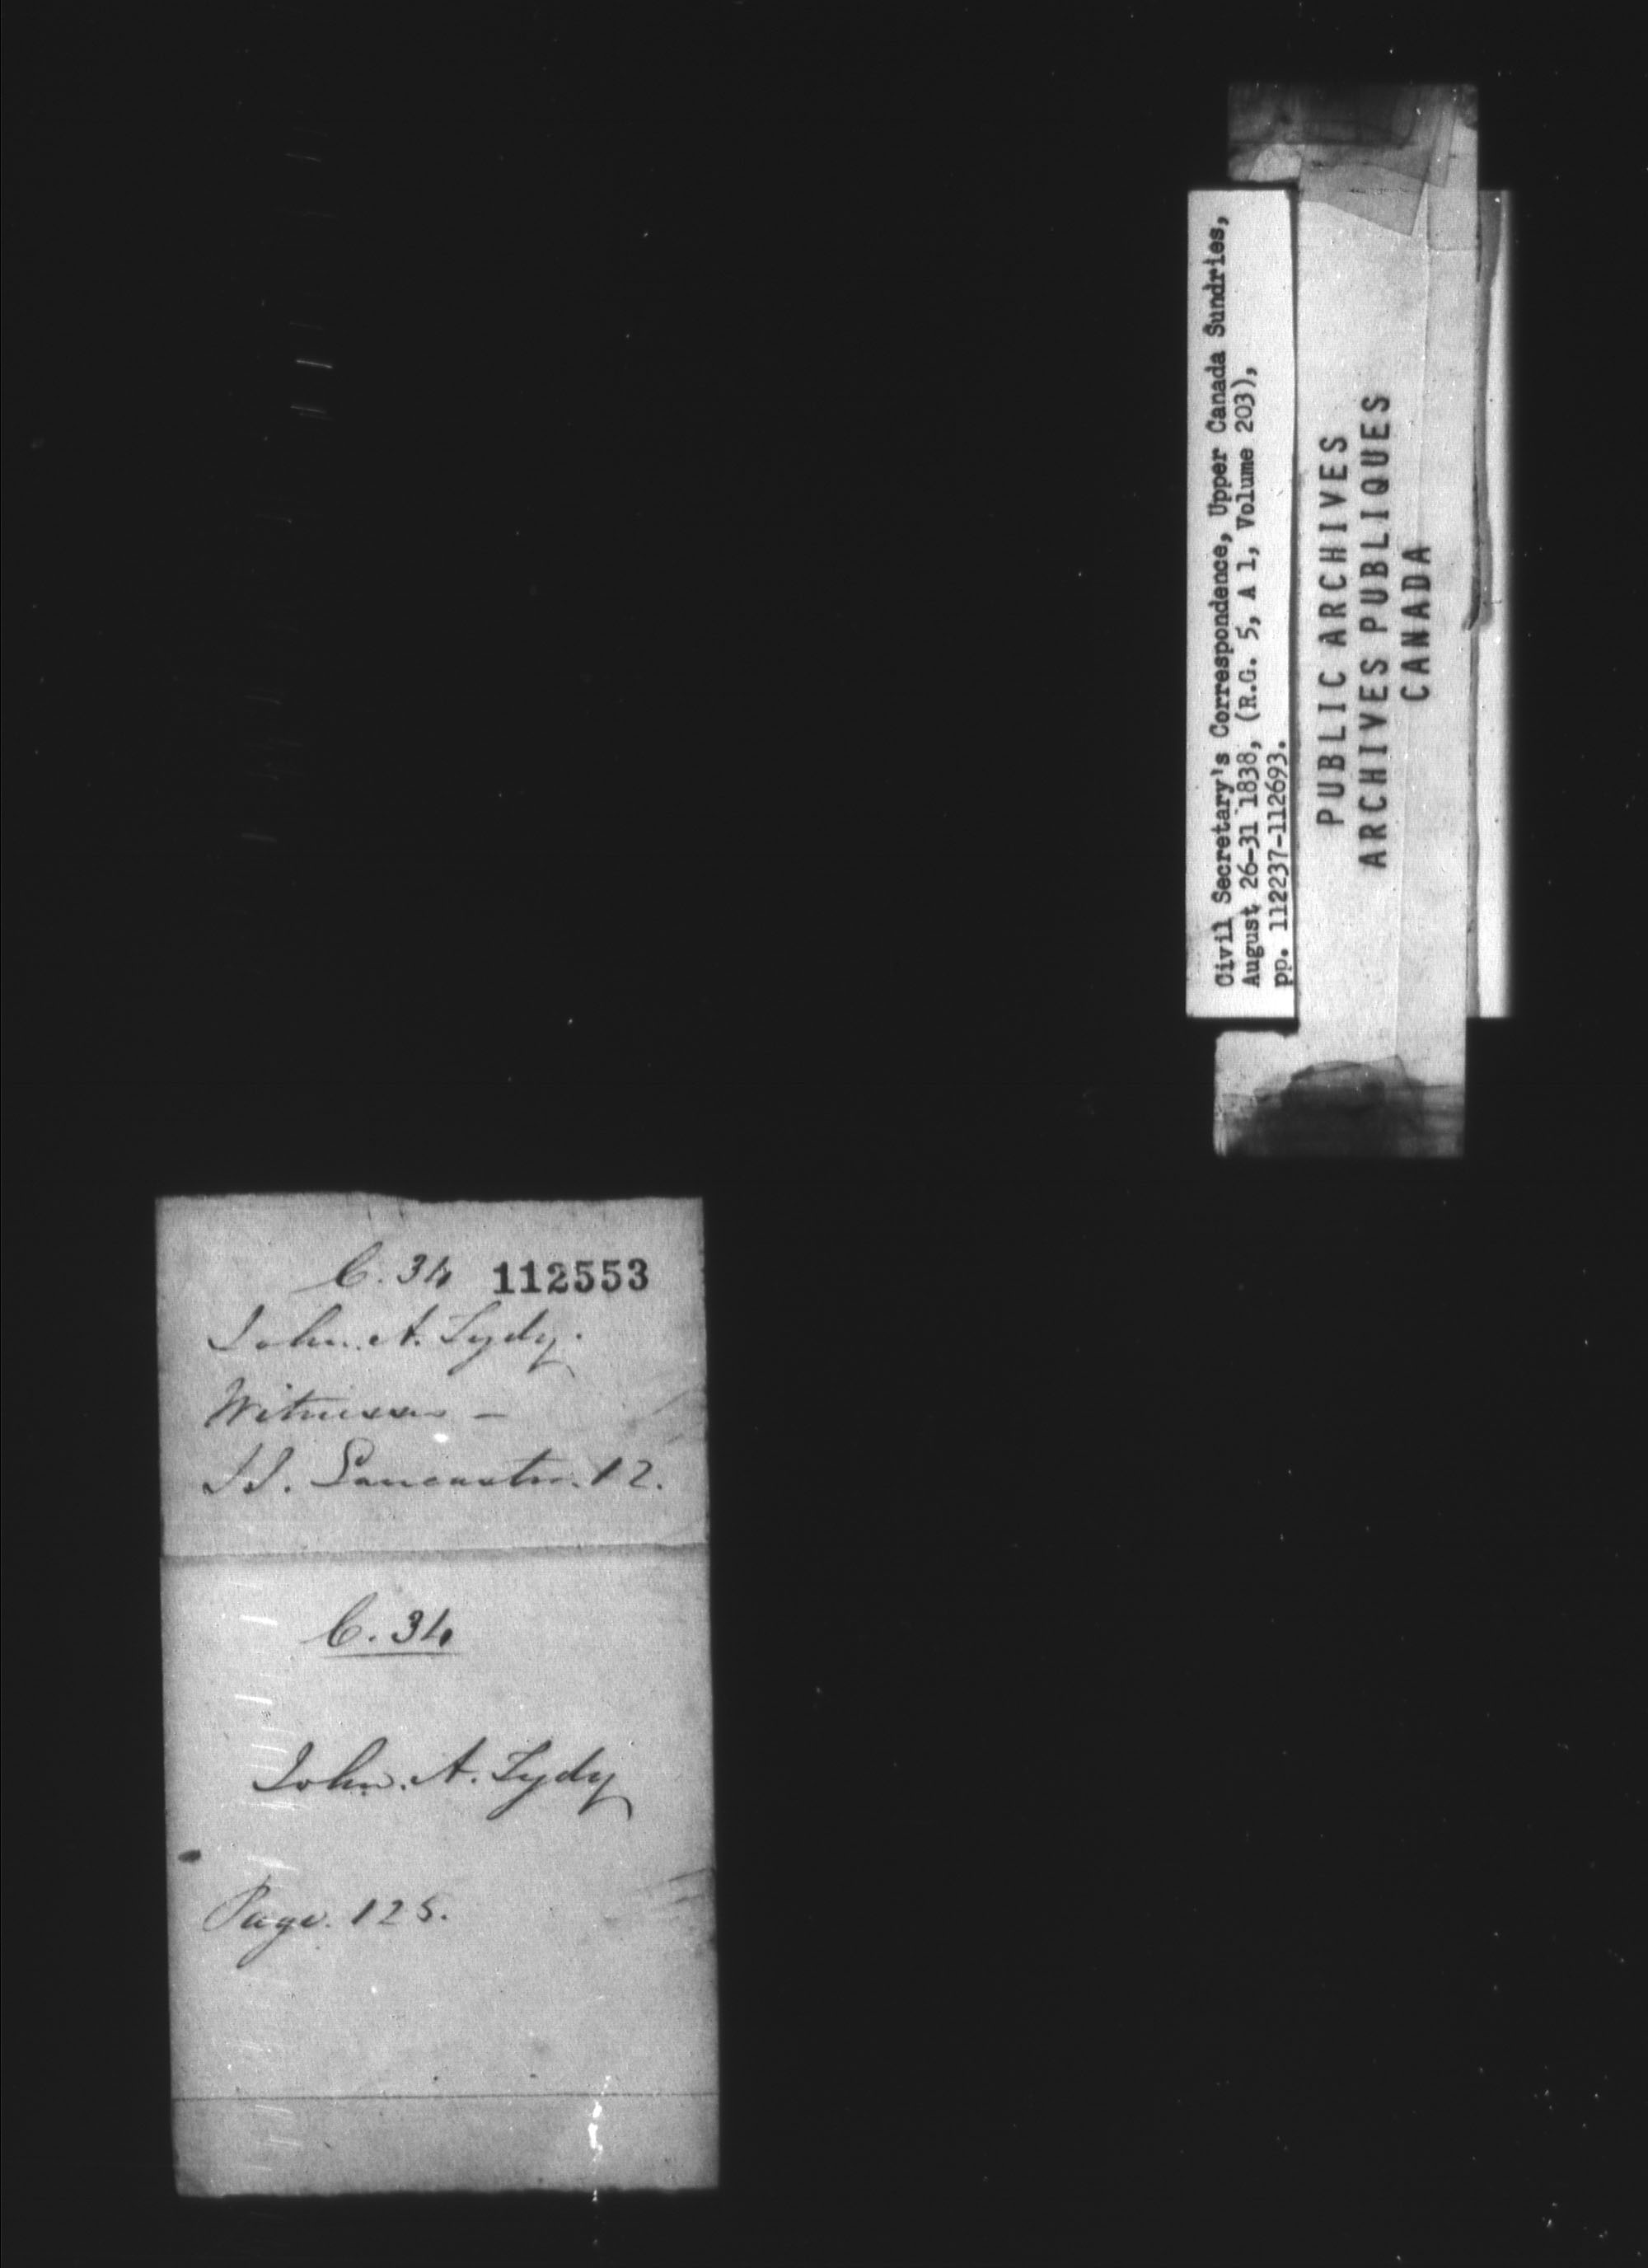 C. 34 112553
John. A. Tydy.
Witnesses –
J J. Lancaster. 12.
C. 34
John. A. Tydy
Page. 125.
Civil Secretary's Correspondence, Upper Canada Sundries,
August 26-31 1838, (R.G. 5, A 1, Volume 203),
pp. 112237-112693.
PUBLIC ARCHIVES
ARCHIVES PUBLIQUES
CANADA